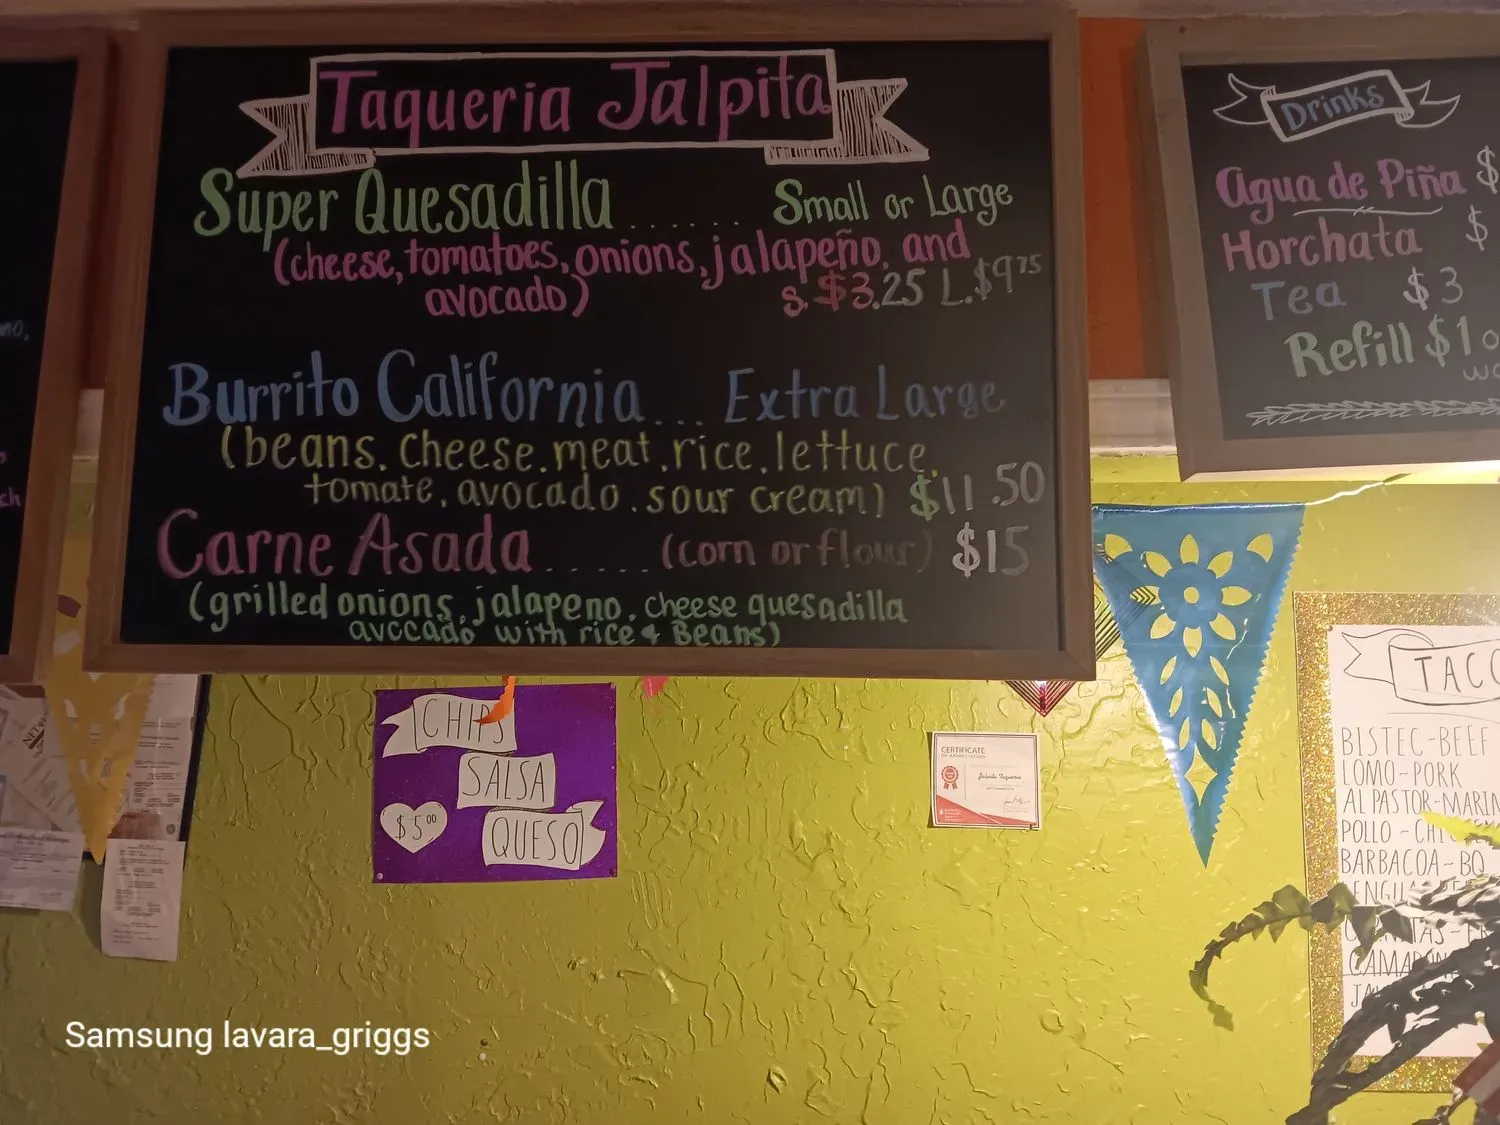 Taqueria Jalpita
Super Quesadilla ...... Small or Large
(cheese, tomatoes, onions, jalapeño, and
avocado) s. $3.25 L. $9.75
Burrito California ... Extra Large
(beans. cheese. meat. rice. lettuce.
tomate. avocado. sour cream) $11.50
Carne Asada ...... (corn or flour) $15
(grilled onions, jalapeno, cheese quesadilla
avccado with rice & Beans)
Drinks
Agua de Piña $
Horchata $
Tea $3
Refill $1
CHIPS
SALSA
QUESO
$5.00
CERTIFICATE
OF APPRECIATION
Jalpita Taqueria
TACO
BISTEC-BEEF
LOMO-PORK
AL PASTOR-MARIN
POLLO - CHICKEN
BARBACOA-BQ
Samsung lavara_griggs